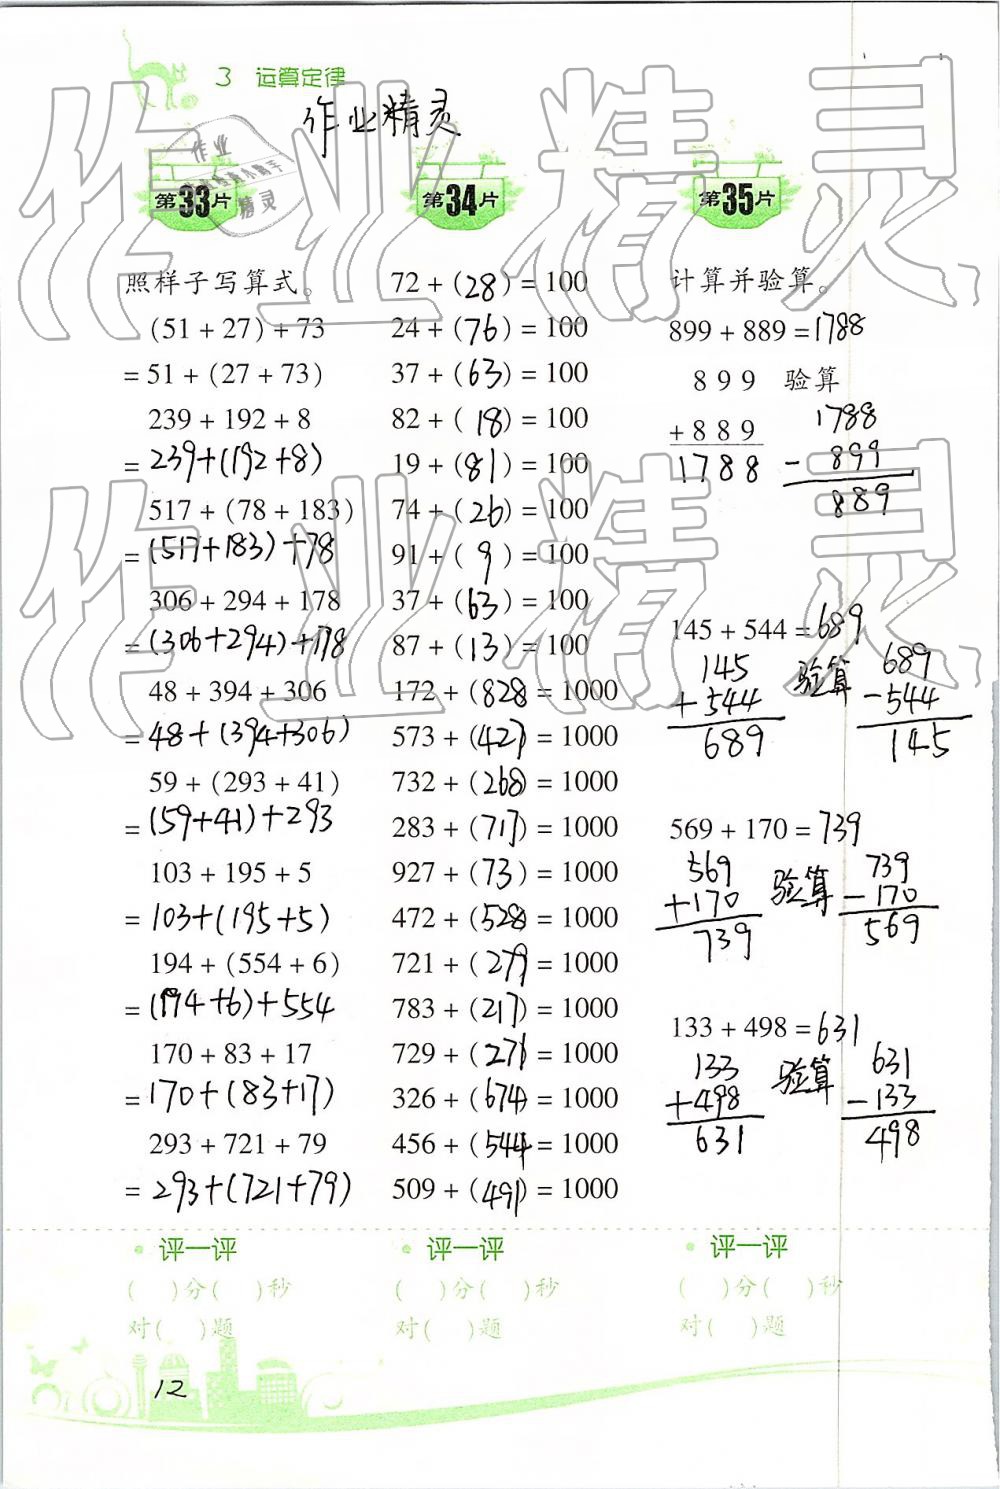 3 运算定律
作业精灵
第33片
照样子写算式。
(51+27)+73
=51+(27+73)
239+192+8
=239+(192+8)
517+(78+183)
=(517+183)+78
306+294+178
=(306+294)+178
48+394+306
=48+(394+306)
59+(293+41)
=(59+41)+293
103+195+5
=103+(195+5)
194+(554+6)
=(194+6)+554
170+83+17
=170+(83+17)
293+721+79
=293+(721+79)
评一评
( )分( )秒
对( )题
第34片
72+(28)=100
24+(76)=100
37+(63)=100
82+(18)=100
19+(81)=100
74+(26)=100
91+(9)=100
37+(63)=100
87+(13)=100
172+(828)=1000
573+(427)=1000
732+(268)=1000
283+(717)=1000
927+(73)=1000
472+(528)=1000
721+(279)=1000
783+(217)=1000
729+(271)=1000
326+(674)=1000
456+(544)=1000
509+(491)=1000
评一评
( )分( )秒
对( )题
第35片
计算并验算。
899+889=1788
899 验算 1788
+889 -899
1788 889
145+544=689
145 验算 689
+544 -544
689 145
569+170=739
569 验算 739
+170 -170
739 569
133+498=631
133 验算 631
+498 -133
631 498
评一评
( )分( )秒
对( )题
12
作业精灵